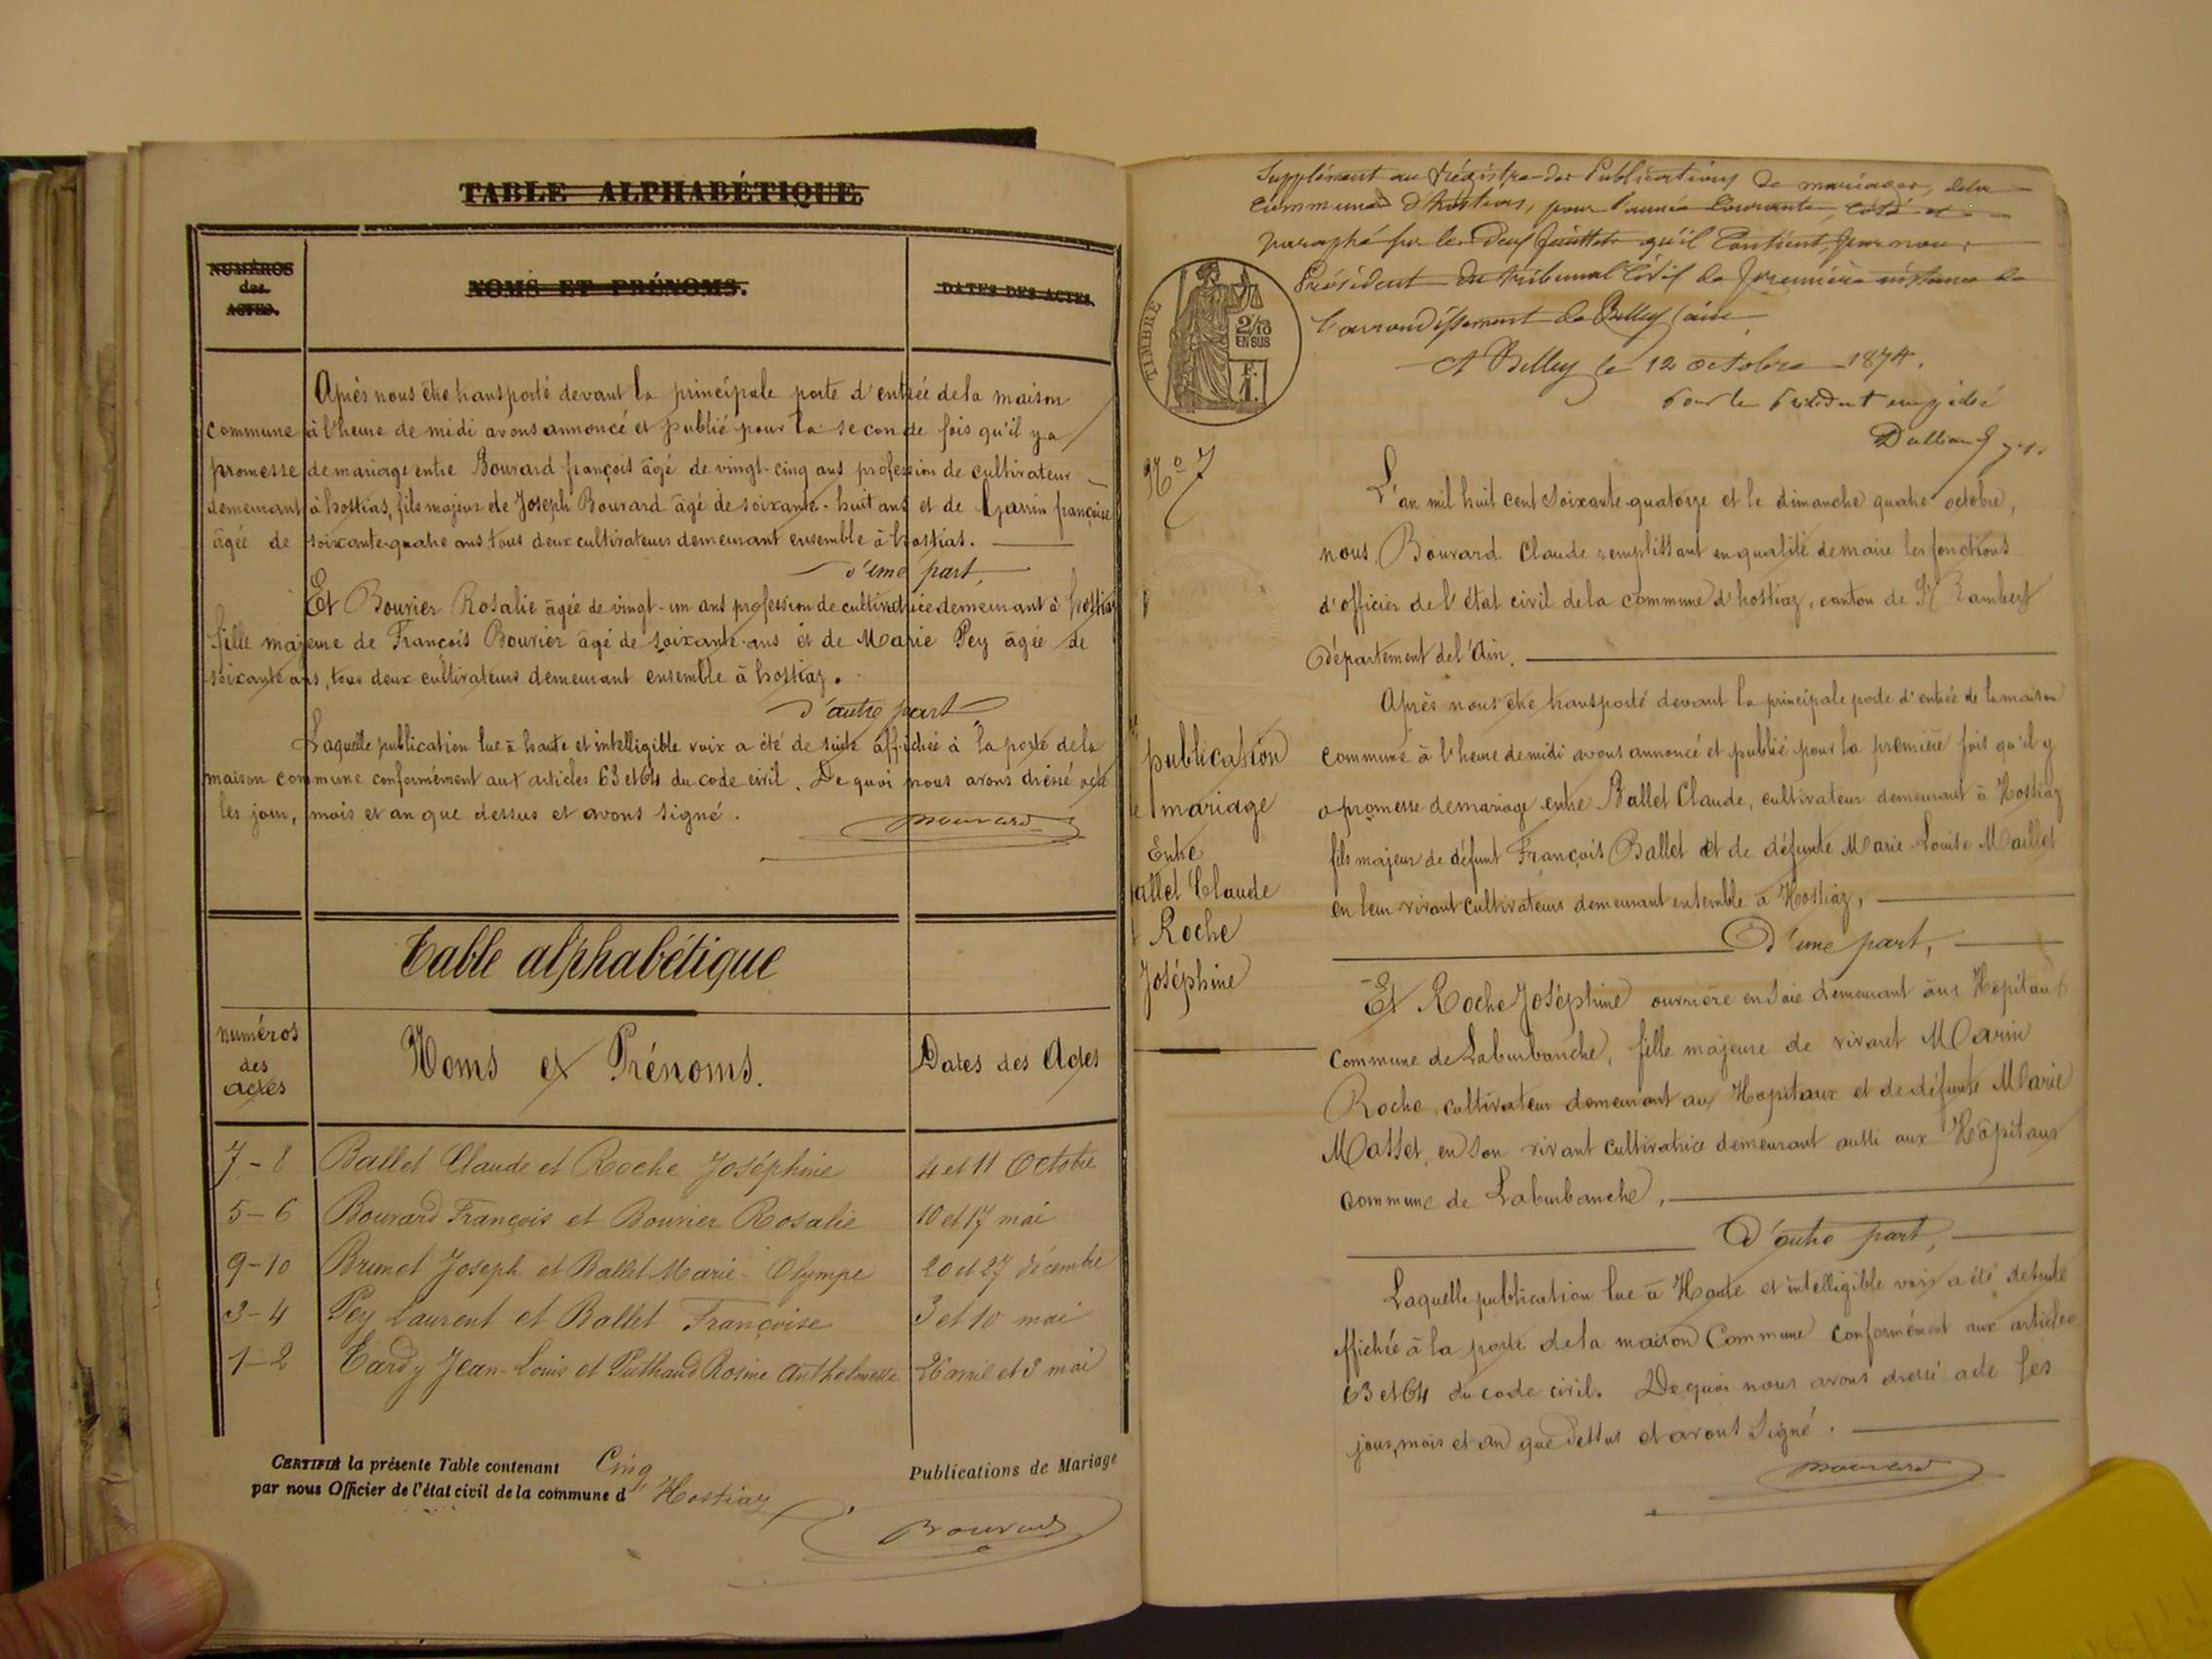 TABLE ALPHABÉTIQUE.
NUMÉROS
des
ACTES.
NOMS ET PRÉNOMS.
DATES DES ACTES.
Après nous être transporté devant la principale porte d'entrée de la maison
commune à l'heure de midi avons annoncé et publié pour la seconde fois qu'il y a
promesse de mariage entre Bouvard françois âgé de vingt-cinq ans profession de cultivateur
demeurant à hostias, fils majeur de Joseph Bouvard âgé de soixante-huit ans et de françoise
âgée de soixante-quatre ans tous deux cultivateurs demeurant ensemble à hostias.
d'une part,
Et Bouvier Rosalie âgée de vingt-un ans profession de cultivatrice demeurant à hostiaz
fille majeure de François Bouvier âgé de soixante ans et de Marie Pey âgée de
soixante ans, tous deux cultivateurs demeurant ensemble à hostiaz.
d'autre part
Laquelle publication lue à haute et intelligible voix a été de suite affichée à la porte de la
maison commune conformément aux articles 63 et 64 du code civil. De quoi nous avons dressé acte
les jour, mois et an que dessus et avons signé.
Bouvard
Table alphabétique
numéros
des
actes
Noms et Prénoms.
Dates des Actes
7-8 Ballet Claude et Roche Joséphine 4 et 11 Octobre
5-6 Bouvard François et Bouvier Rosalie 10 et 17 mai
9-10 Brunet Joseph et Ballet Marie-Olympe 20 et 27 décembre
3-4 Pey Laurent et Ballet Françoise 3 et 10 mai
1-2 Tardy Jean-Louis et Rosine Anthelmette 26 avril et 3 mai
CERTIFIÉ la présente Table contenant Cinq Publications de Mariage
par nous Officier de l'état civil de la commune d'Hostiaz
Bouvard
Supplément au Régistre des Publications de mariages, de la
commune d'hostias, pour l'année Courante, coté et
paraphé sur les deux feuillets qu'il Contient, par nous
Président du tribunal Civil de première instance de
l'arrondissement de Belley (ain)
A Belley le 12 octobre 1874.
Pour le Président empêché
TIMBRE
2/10
EN SUS
F.
1.
No 7
L'an mil huit cent soixante-quatorze et le dimanche quatre octobre,
nous, Bouvard Claude remplissant en qualité de maire les fonctions
d'officier de l'état civil de la commune d'hostiaz, canton de St Rambert
département de l'Ain.
publication
mariage
Entre
allet Claude
Roche
Joséphine
Après nous être transporté devant la principale porte d'entrée de la maison
commune à l'heure de midi avons annoncé et publié pour la première fois qu'il y
a promesse de mariage entre Ballet Claude, cultivateur demeurant à Hostiaz
fils majeur de défunt François Ballet et de défunte Marie-Louise Maillet
en leur vivant cultivateurs demeurant ensemble à Hostiaz,
D'une part,
Et Roche Joséphine ouvrière en soie demeurant aux Hopitaux
commune de Laburbanche, fille majeure de vivant Marin
Roche, cultivateur demeurant aux Hopitaux et de défunte Marie
Masset, en son vivant cultivatrice demeurant aussi aux Hôpitaux
commune de Laburbanche,
D'autre part,
Laquelle publication lue à Haute et intelligible voix a été de suite
affichée à la porte de la maison Commune conformément aux articles
63 et 64 du code civil. De quoi nous avons dressé acte les
jour, mois et an que dessus et avons Signé.
Bouvard